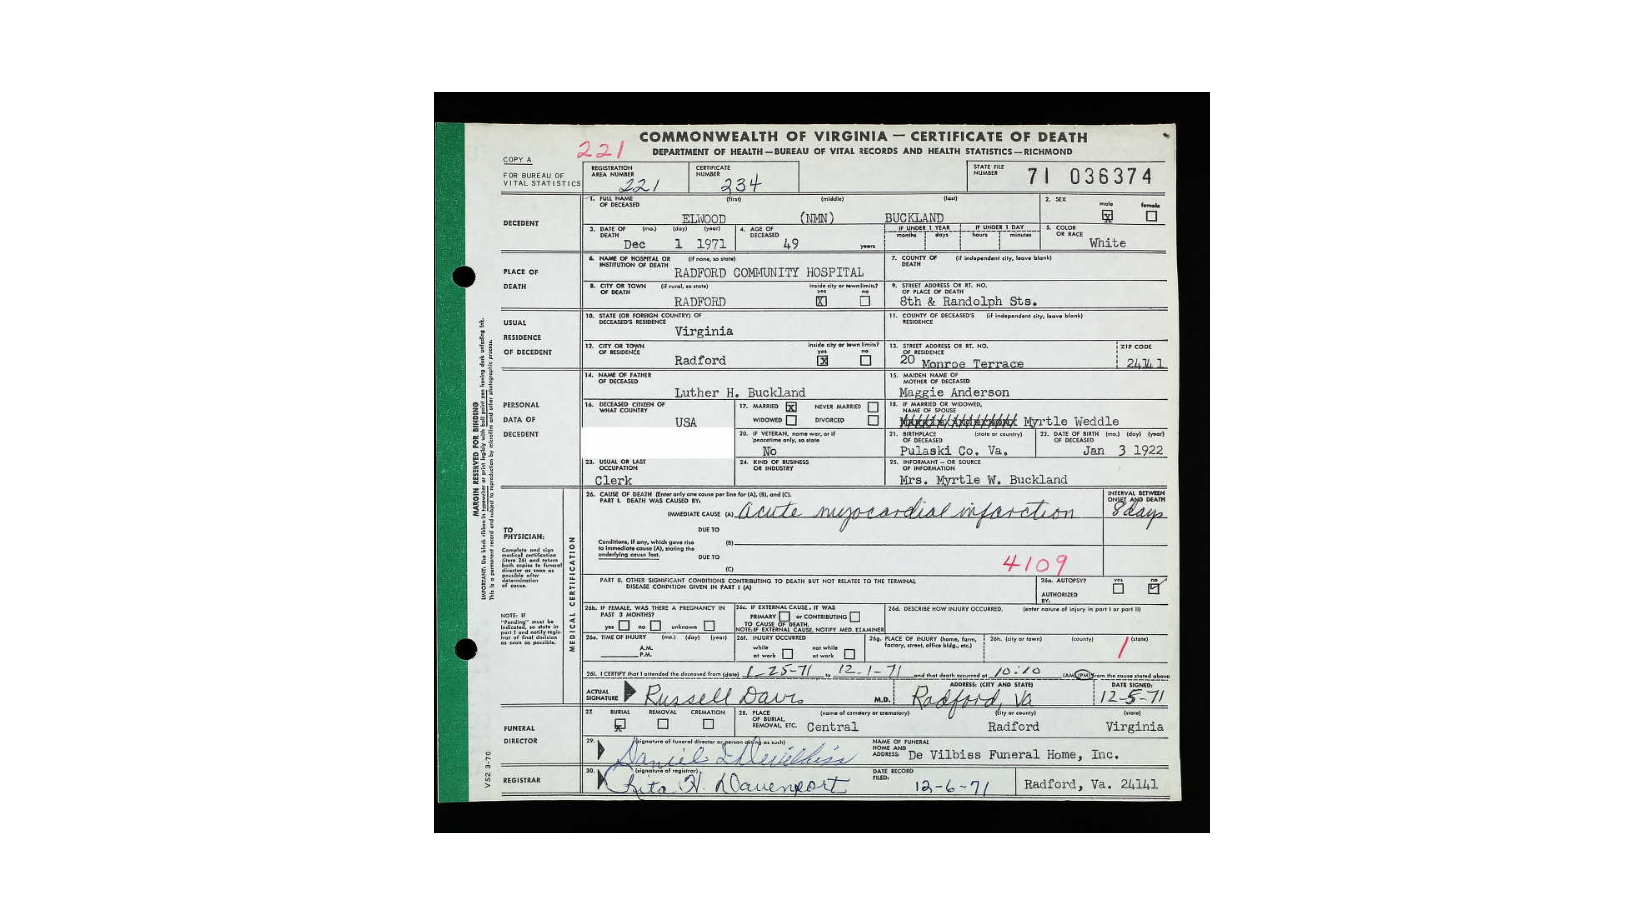 COMMONWEALTH OF VIRGINIA — CERTIFICATE OF DEATH
DEPARTMENT OF HEALTH—BUREAU OF VITAL RECORDS AND HEALTH STATISTICS—RICHMOND
221
COPY A
FOR BUREAU OF
VITAL STATISTICS
REGISTRATION
AREA NUMBER 221
CERTIFICATE
NUMBER 234
STATE FILE
NUMBER 71 036374
DECEDENT
1. FULL NAME (first) (middle) (last)
OF DECEASED
ELWOOD (NMN) BUCKLAND
2. SEX male X female
3. DATE OF (mo.) (day) (year)
DEATH
Dec 1 1971
4. AGE OF
DECEASED 49 years
IF UNDER 1 YEAR IF UNDER 1 DAY
months days hours minutes
5. COLOR
OR RACE White
PLACE OF
DEATH
6. NAME OF HOSPITAL OR (if none, so state)
INSTITUTION OF DEATH
RADFORD COMMUNITY HOSPITAL
7. COUNTY OF (if independent city, leave blank)
DEATH
8. CITY OR TOWN (if rural, so state) inside city or town limits?
OF DEATH yes no
RADFORD X
9. STREET ADDRESS OR RT. NO.
OF PLACE OF DEATH
8th & Randolph Sts.
USUAL
RESIDENCE
OF DECEDENT
10. STATE (OR FOREIGN COUNTRY) OF
DECEASED'S RESIDENCE
Virginia
11. COUNTY OF DECEASED'S (if independent city, leave blank)
RESIDENCE
12. CITY OR TOWN inside city or town limits?
OF RESIDENCE yes no
Radford X
13. STREET ADDRESS OR RT. NO.
OF RESIDENCE
20 Monroe Terrace
ZIP CODE
24141
PERSONAL
DATA OF
DECEDENT
14. NAME OF FATHER
OF DECEASED
Luther H. Buckland
15. MAIDEN NAME OF
MOTHER OF DECEASED
Maggie Anderson
16. DECEASED CITIZEN OF
WHAT COUNTRY
USA
17. MARRIED X NEVER MARRIED
WIDOWED DIVORCED
18. IF MARRIED OR WIDOWED,
NAME OF SPOUSE
Maggie Anderson Myrtle Weddle
20. IF VETERAN, name war, or if
peacetime only, so state
No
21. BIRTHPLACE (state or country)
OF DECEASED
Pulaski Co. Va.
22. DATE OF BIRTH (mo.) (day) (year)
OF DECEASED
Jan 3 1922
23. USUAL OR LAST
OCCUPATION
Clerk
24. KIND OF BUSINESS
OR INDUSTRY
25. INFORMANT – OR SOURCE
OF INFORMATION
Mrs. Myrtle W. Buckland
MARGIN RESERVED FOR BINDING
TO
PHYSICIAN:
Complete and sign
medical certification
(item 26) and return
both copies to funeral
director as soon as
possible after
determination
of cause.
NOTE: IF
"Pending" must be
indicated, so state in
part I and notify regis-
trar of final decision
as soon as possible.
MEDICAL CERTIFICATION
26. CAUSE OF DEATH (Enter only one cause per line for (A), (B), and (C).
PART I. DEATH WAS CAUSED BY:
IMMEDIATE CAUSE (A) acute myocardial infarction
INTERVAL BETWEEN
ONSET AND DEATH
8 days
DUE TO
Conditions, if any, which gave rise
to immediate cause (A), stating the
underlying cause last.
(B)
DUE TO
(C)
4109
PART II. OTHER SIGNIFICANT CONDITIONS CONTRIBUTING TO DEATH BUT NOT RELATED TO THE TERMINAL
DISEASE CONDITION GIVEN IN PART I (A)
26a. AUTOPSY? yes no
AUTHORIZED
BY:
26b. IF FEMALE, WAS THERE A PREGNANCY IN
PAST 3 MONTHS?
yes no unknown
26c. IF EXTERNAL CAUSE, IT WAS
PRIMARY or CONTRIBUTING
TO CAUSE OF DEATH.
NOTE: IF EXTERNAL CAUSE, NOTIFY MED. EXAMINER
26d. DESCRIBE HOW INJURY OCCURRED. (enter nature of injury in part I or part II)
26e. TIME OF INJURY (mo.) (day) (year)
A.M.
P.M.
26f. INJURY OCCURRED
while at work not while at work
26g. PLACE OF INJURY (home, farm,
factory, street, office bldg., etc.)
26h. (city or town) (county) (state)
1
26i. I CERTIFY that I attended the deceased from (date) 1-25-71 to 12-1-71 and that death occurred at 10:10 (AM) (PM) from the cause stated above
ACTUAL
SIGNATURE Russell Davis M.D.
ADDRESS: (CITY AND STATE)
Radford, Va
DATE SIGNED:
12-5-71
FUNERAL
DIRECTOR
27. BURIAL X REMOVAL CREMATION
28. PLACE (name of cemetery or crematory) (city or county) (state)
OF BURIAL,
REMOVAL, ETC. Central Radford Virginia
29. (signature of funeral director or person acting as such)
NAME OF FUNERAL
HOME AND
ADDRESS De Vilbiss Funeral Home, Inc.
REGISTRAR
30. (signature of registrar)
Rita H. Davenport
DATE RECORD
FILED: 12-6-71
Radford, Va. 24141
VS2 3-70